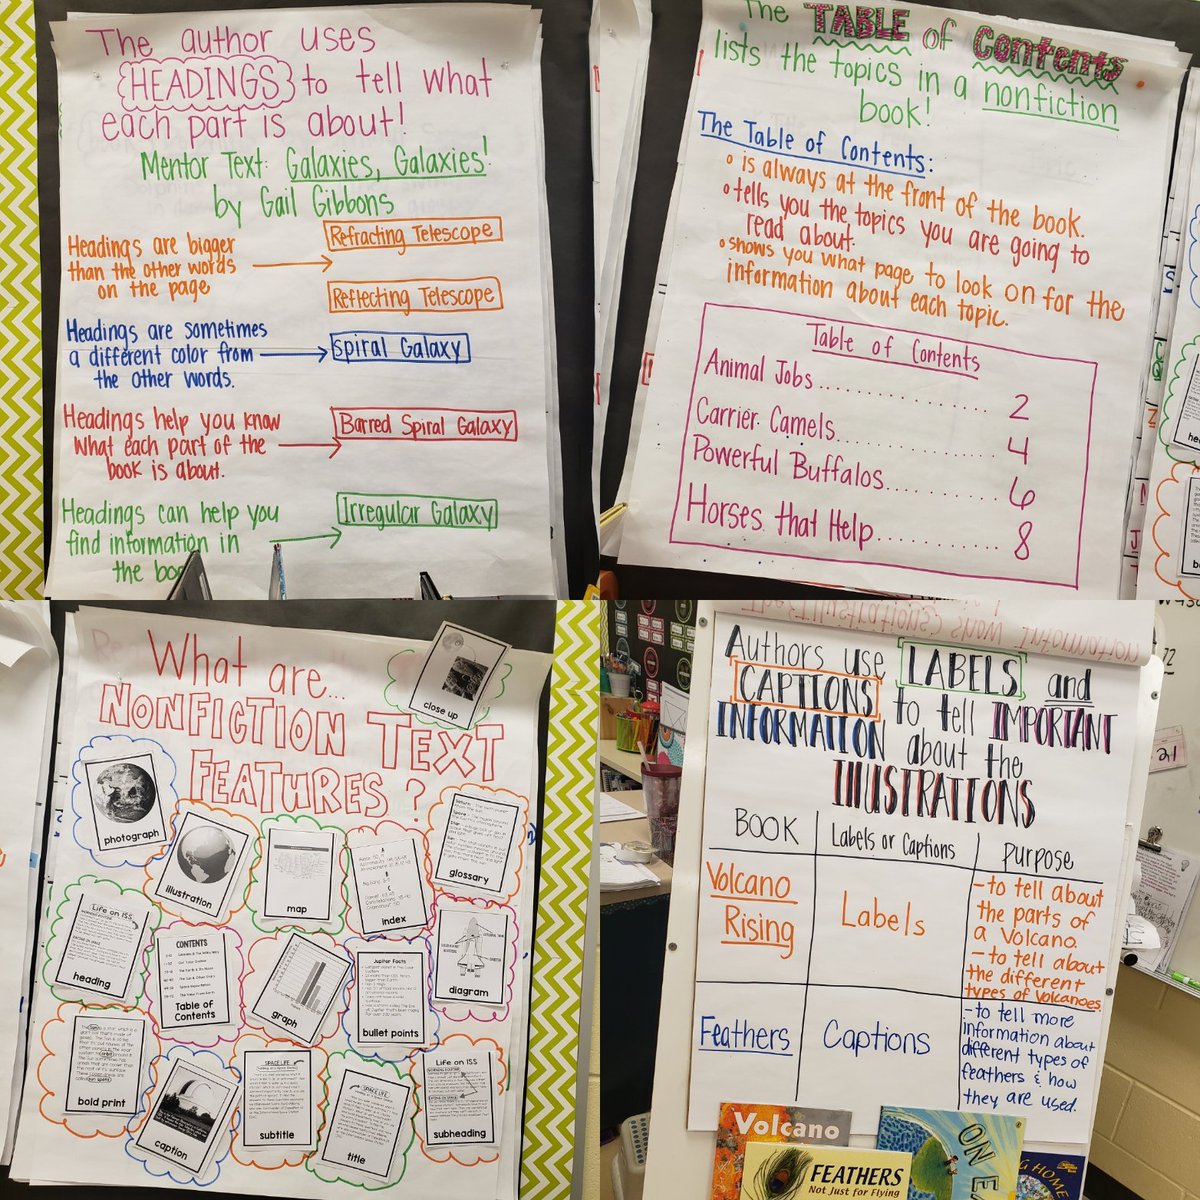 The author uses
HEADINGS to tell what
each part is about!
Mentor Text: Galaxies, Galaxies!
by Gail Gibbons
Headings are bigger
than the other words
on the page
Refracting Telescope
Reflecting Telescope
Headings are sometimes
a different color from
the other words.
Spiral Galaxy
Headings help you know
what each part of the
book is about.
Barred Spiral Galaxy
Headings can help you
find information in
the
Irregular Galaxy
The TABLE of Contents
lists the topics in a nonfiction
book!
The Table of Contents:
is always at the front of the book.
tells you the topics you are going to
read about.
shows you what page to look on for the
information about each topic.
Table of Contents
Animal Jobs.............. 2
Carrier Camels............ 4
Powerful Buffalos.......... 6
Horses that Help........... 8
What are...
NONFICTION TEXT
FEATURES?
close up
photograph
illustration
map
index
glossary
Life on ISS
heading
CONTENTS
Table of
Contents
graph
Jupiter Facts
bullet points
diagram
bold print
caption
SPACE LIFE
subtitle
SPACE LIFE
title
Life on ISS
subheading
Authors use LABELS and
CAPTIONS to tell IMPORTANT
INFORMATION about the
ILLUSTRATIONS
BOOK
Labels or Captions
Purpose
Volcano
Rising
Labels
-to tell about
the parts of
a Volcano.
-to tell about
the different
types of Volcanoes
Feathers
Captions
-to tell more
information about
different types of
feathers & how
they are used.
Volcano
FEATHERS
Not Just for Flying
ON
HOME